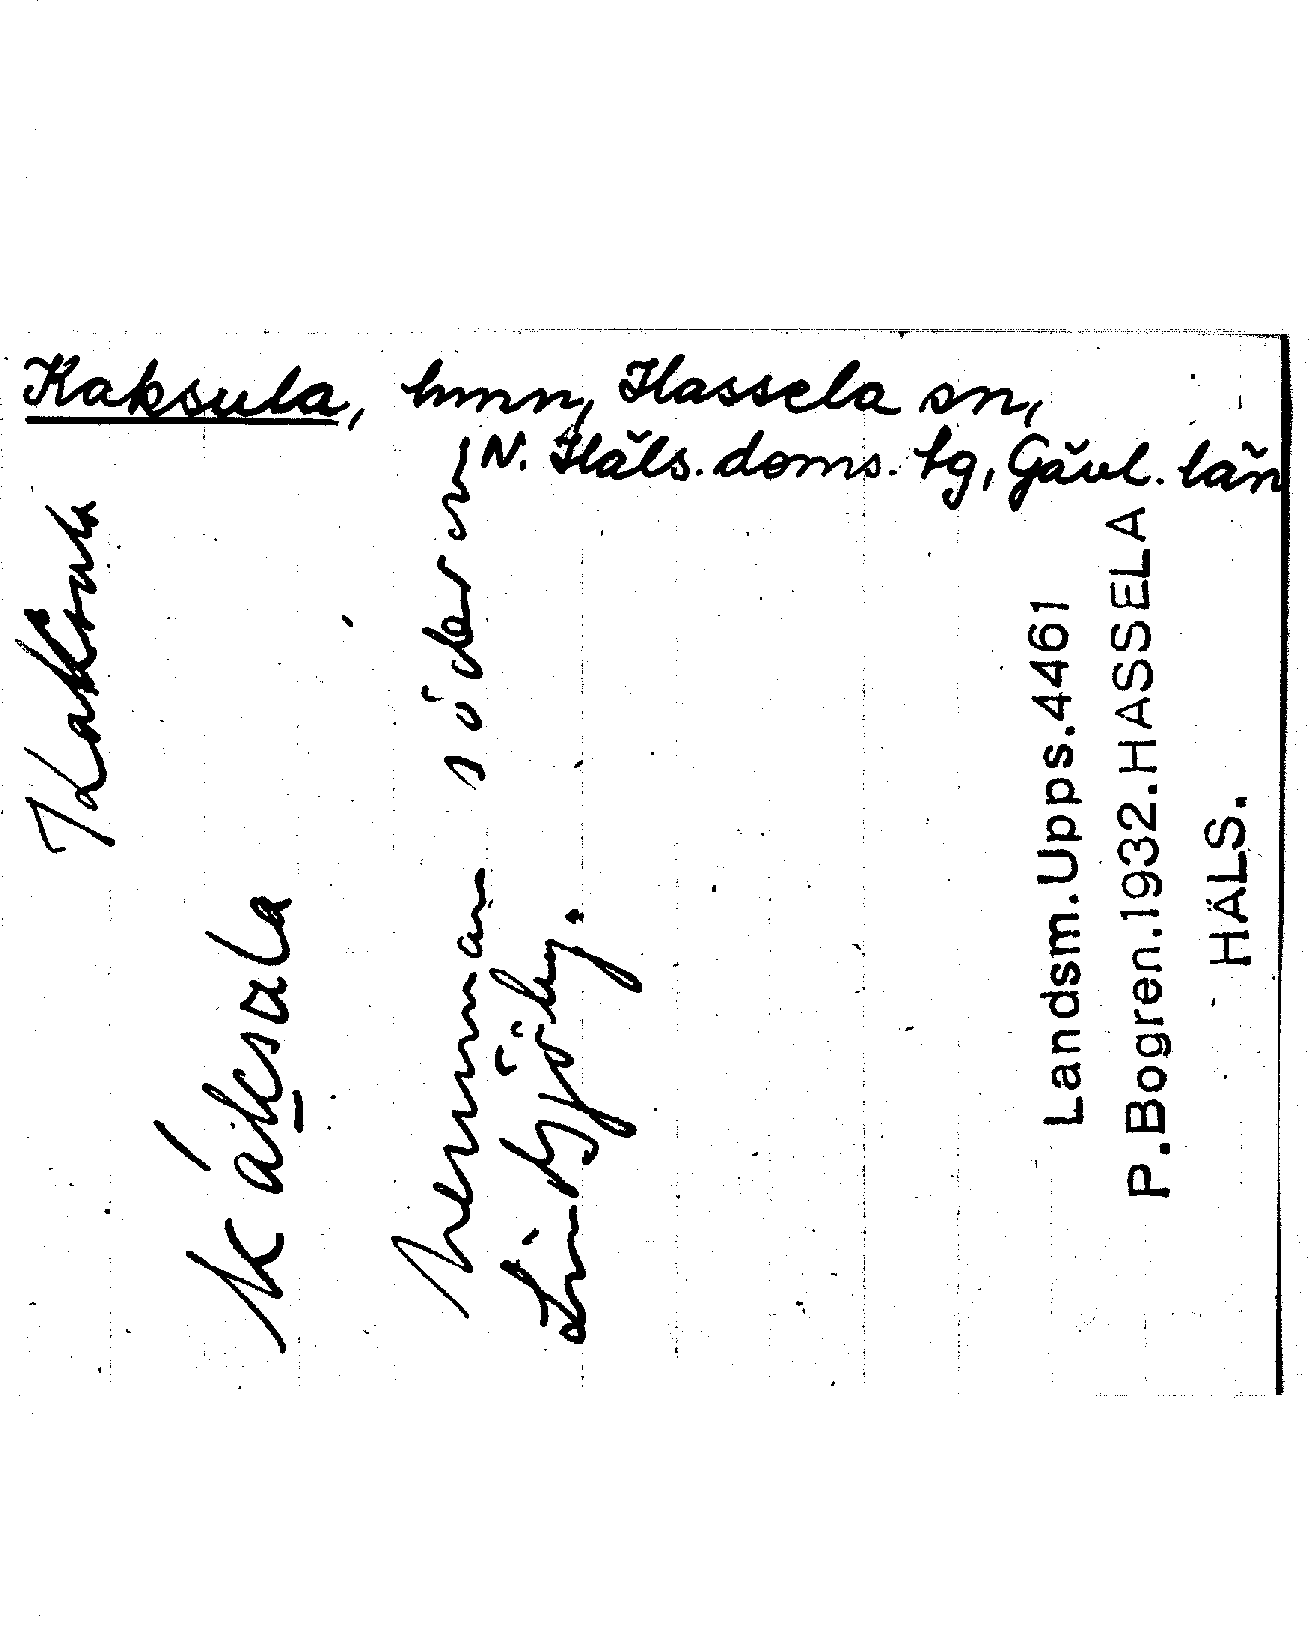 Kaksula, hmn, Hassela sn,
N. Häls. doms. tg, Gävl. län
Kaksula
káksala
hemman söder om
Lindsjöby.
Landsm. Upps. 4461
P. Bogren. 1932. HASSELA
HÄLS.